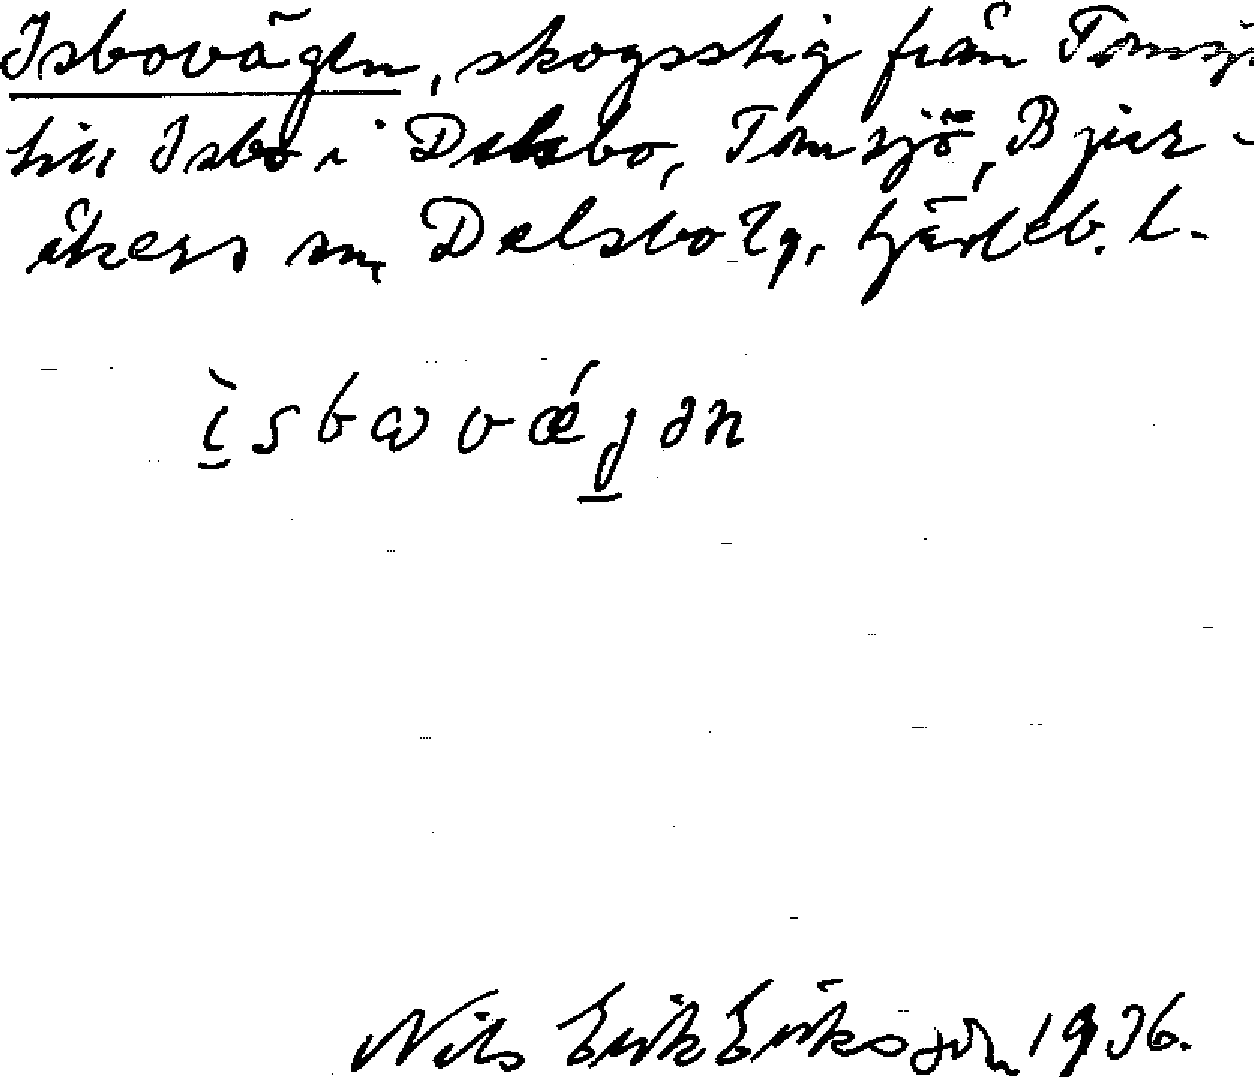 Isbovägen, skogsstig från Tomsj
till Isbo i Delsbo, Tomsjö, Bjur-
åkers sn, Delsbo tg, Gävleb. l.
ìsbωvǽgən
Nils Erik Eriksson 1936.